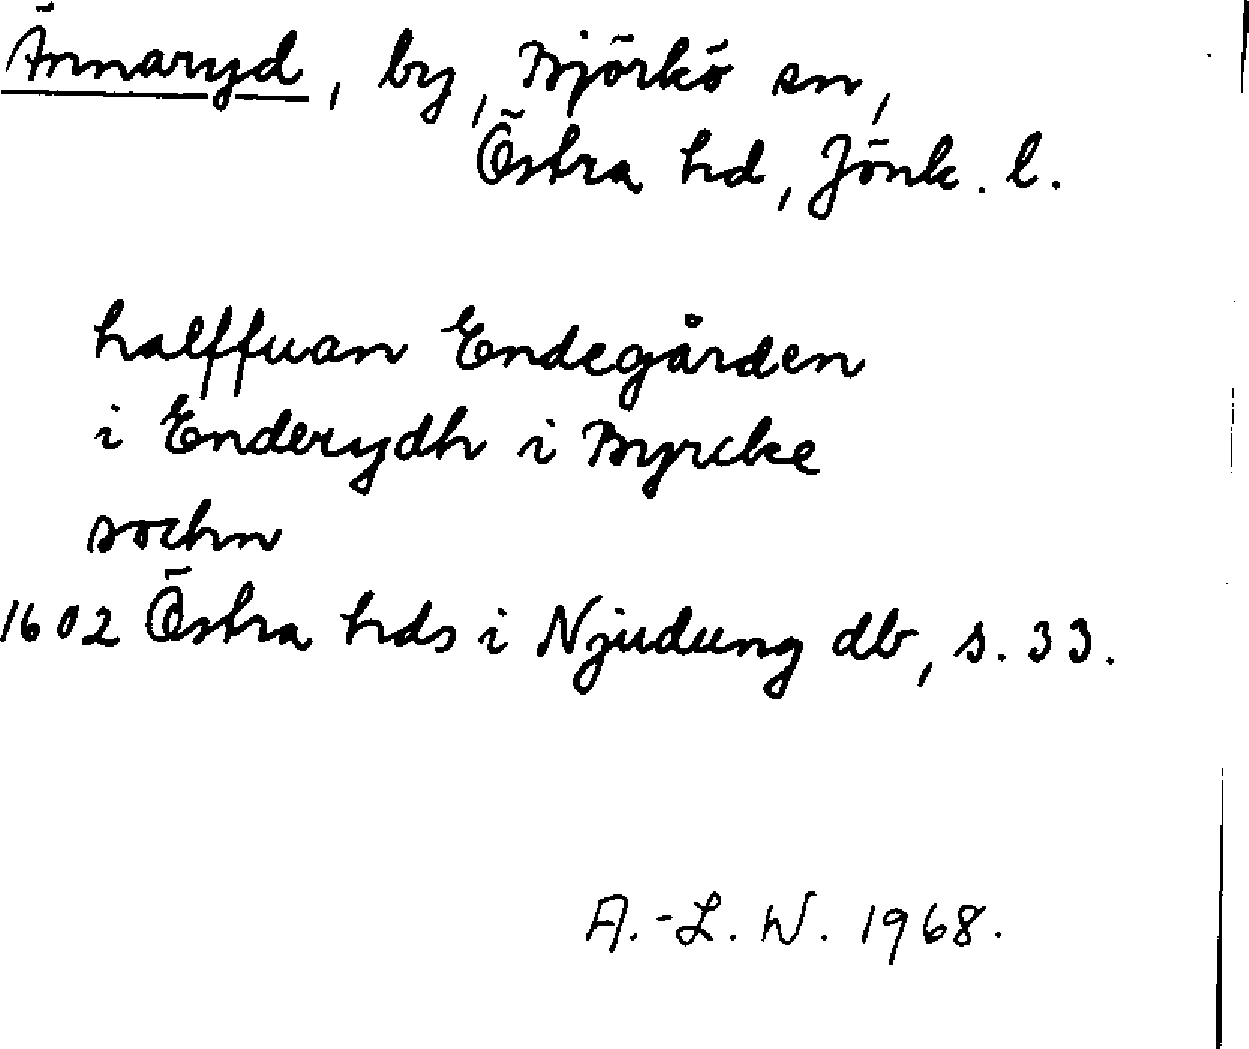 Ännaryd, by, Björkö sn,
Östra hd, Jönk. l.
halffuan Endegården
i Enderydh i Byrcke
sochn
1602 Östra hds i Njudung db, s. 33.
A.-L. W. 1968.